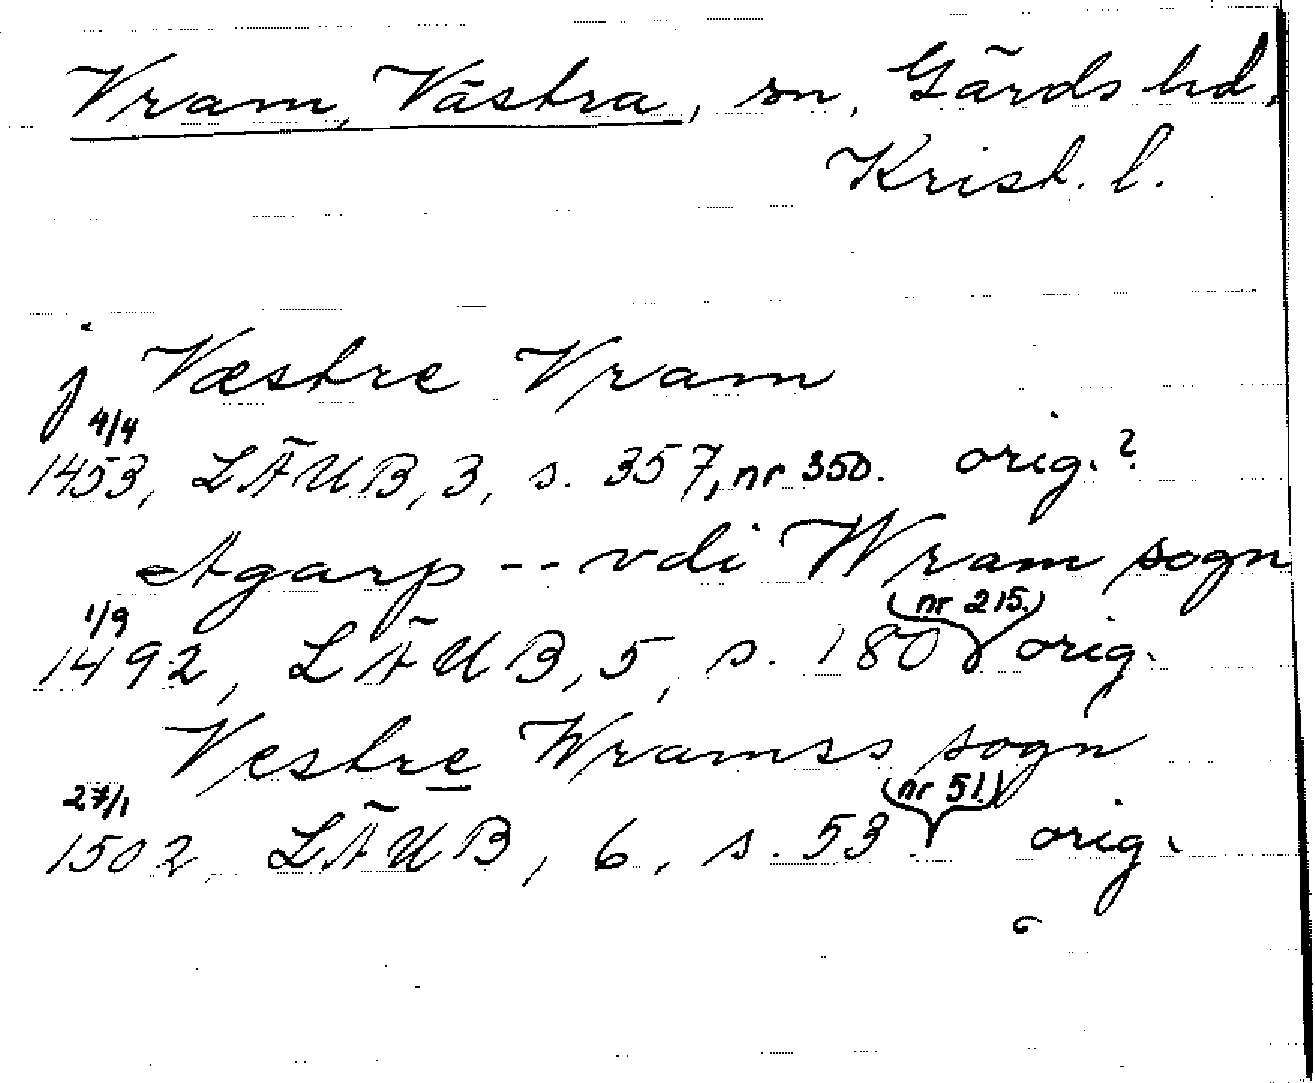 Vram, Västra, sn, Gärds hd,
Krist. l.
j Væstre Vram
4/4
1453, LÄUB, 3, s. 357, nr 350. orig.?
Agarp -- vdi Wram sogn
1/9 (nr 215.)
1492, LÄUB, 5, s. 180 orig.
Vestre Wramss sogn
27/1 (nr 51.)
1502, LÄUB, 6, s. 53 orig.